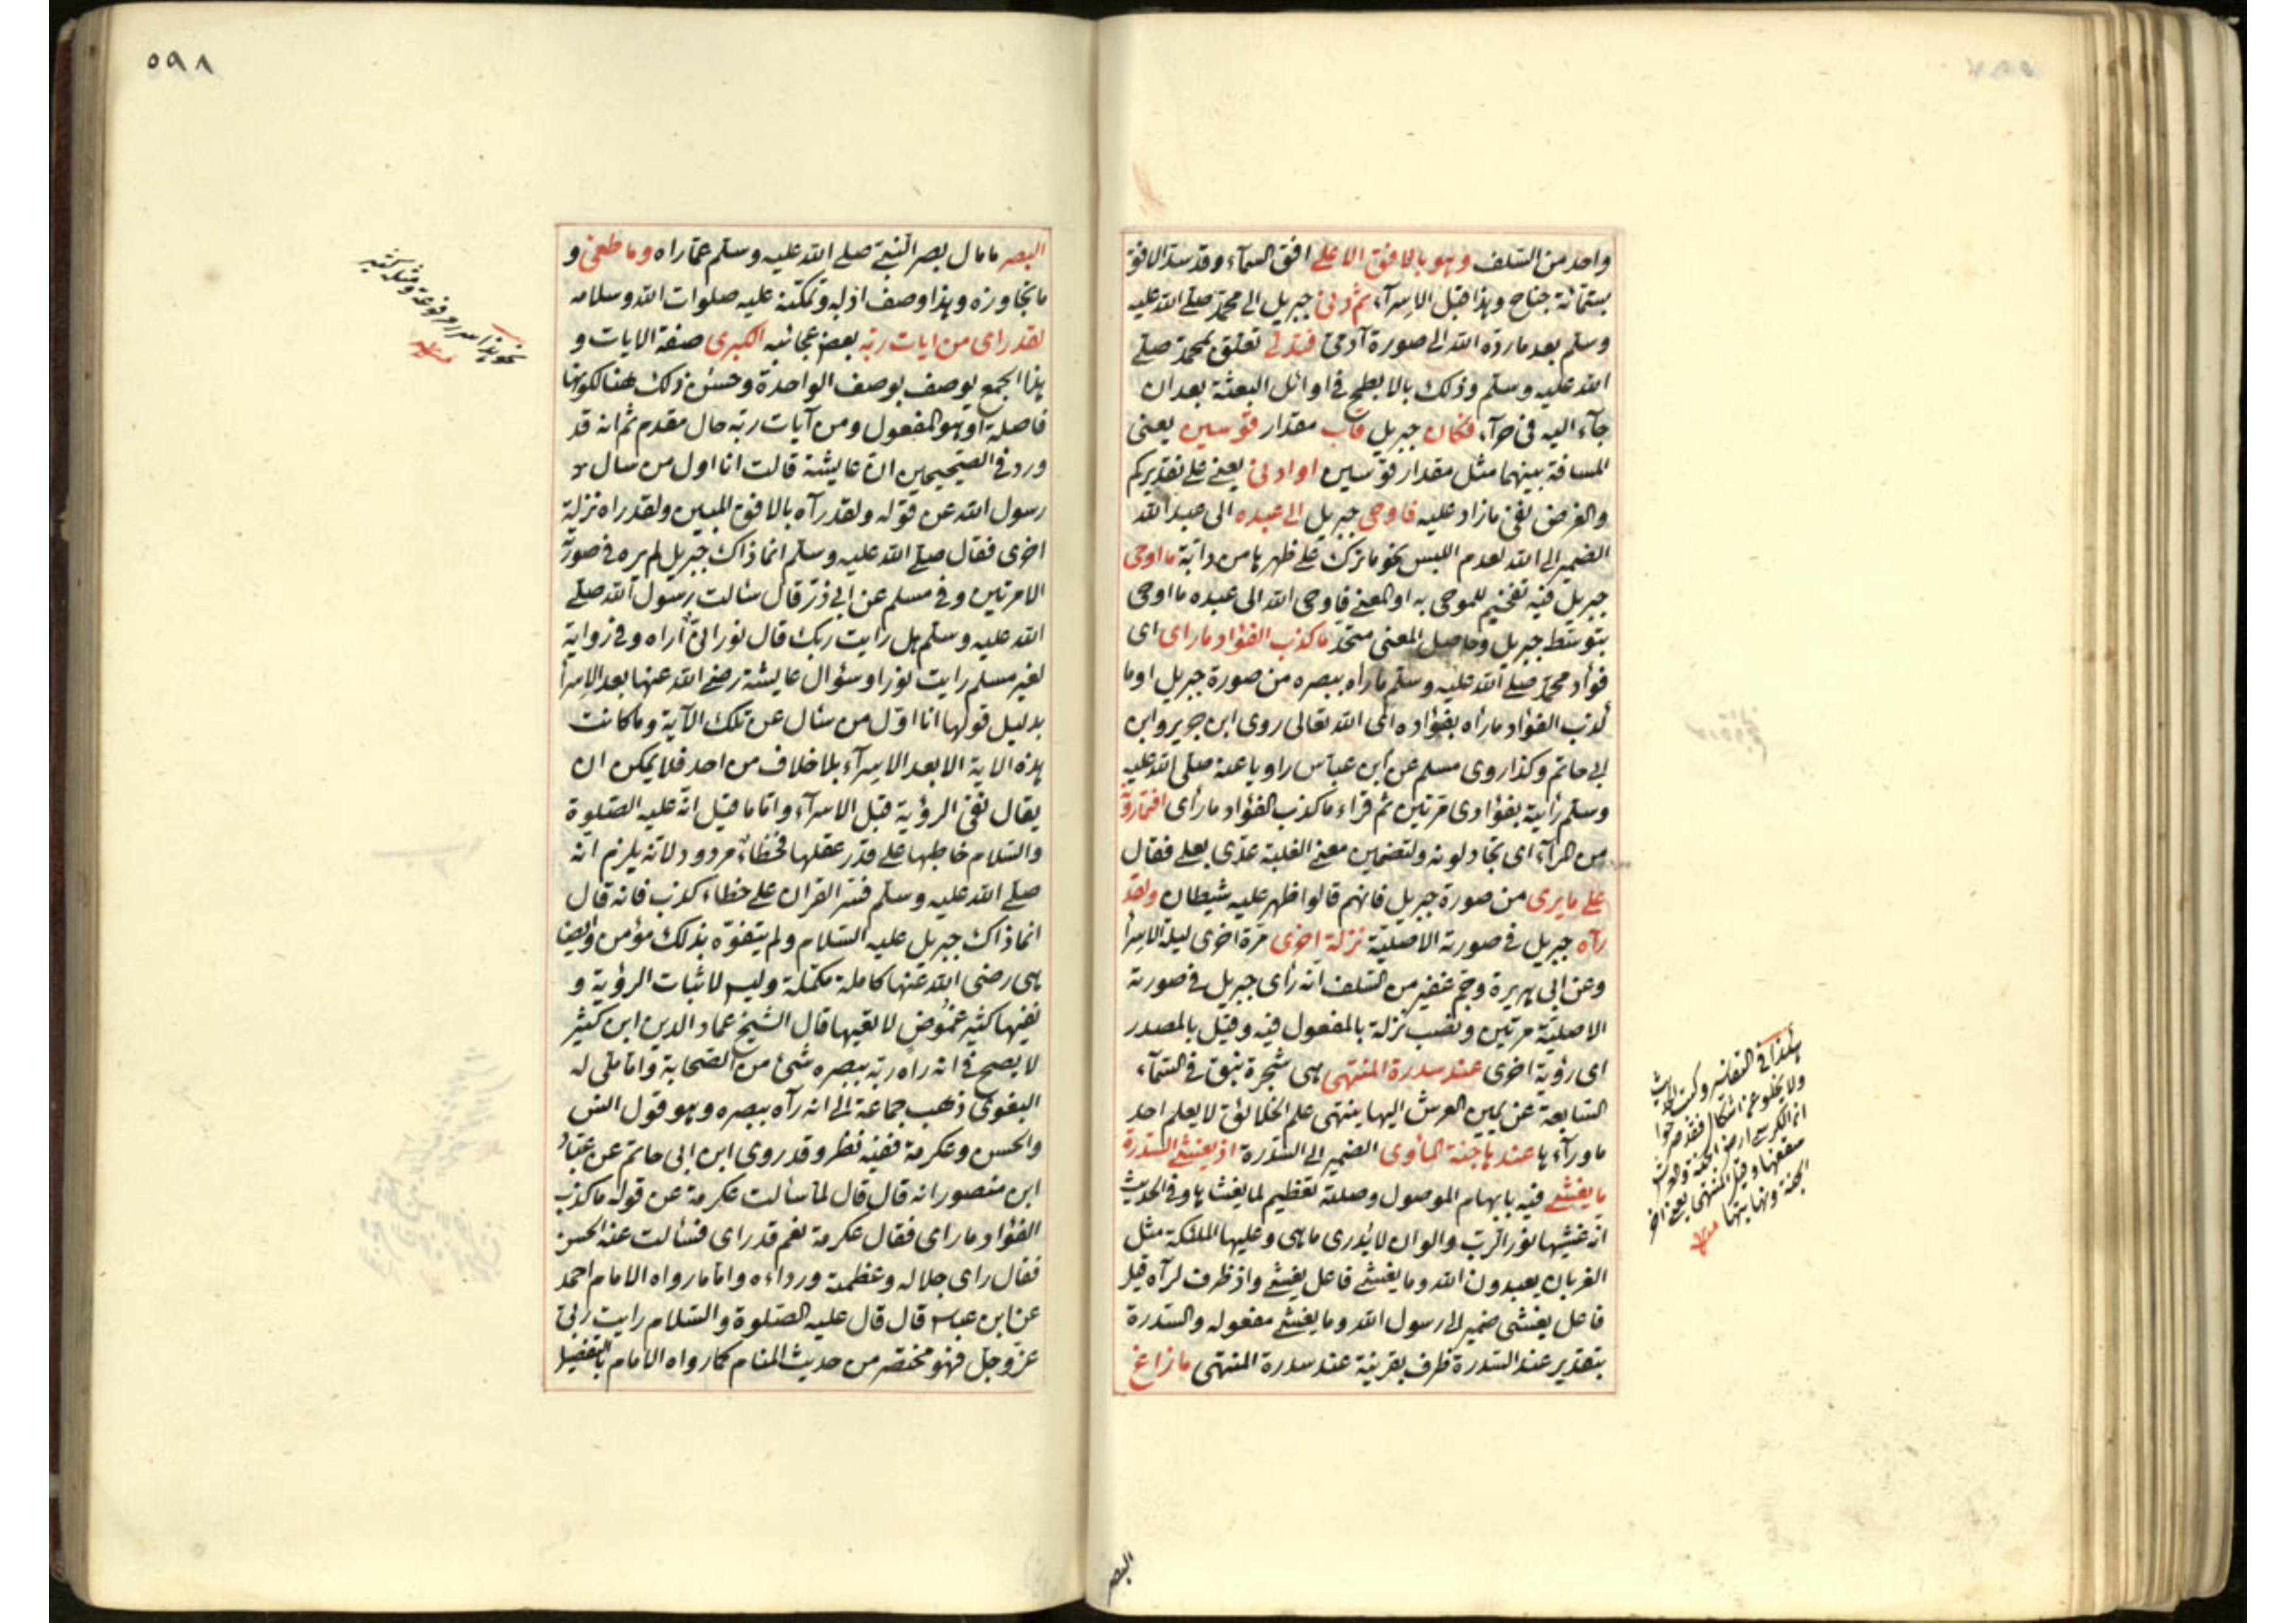 واحد من السلف وهو بالافق الاعلى افق السمآء وقد سد الافق
بستمائة جناح وهذا قبل الاسرآء ثم دنى جبريل الى محمد صلى الله عليه
وسلم بعد ما رده الله الى صورة آدمى فتدلى تعلق بمحمد صلى
الله عليه وسلم وذلك بالابطح فى اوائل البعثة بعد ان
جآء اليه فى حرآء فكان جبريل قاب مقدار قوسين يعنى
المسافة بينهما مثل مقدار قوسين او ادنى يعنى على تقديركم
والغرض نفى ما زاد عليه فاوحى جبريل الى عبده الى عبد الله
الضمير الى الله لعدم اللبس نحو ما ترك على ظهرها من دابة ما اوحى
جبريل فيه تفخيم للموحى به او المعنى فاوحى الله الى عبده ما اوحى
بتوسط جبريل وحاصل المعنى متحد ما كذب الفؤاد ما راى اى
فؤاد محمد صلى الله عليه وسلم ما راه ببصره من صورة جبريل او ما
كذب الفؤاد ما راه بفؤاده اى الله تعالى روى ابن جرير وابن
ابى حاتم وكذا روى مسلم عن ابن عباس راويا عنه صلى الله عليه
وسلم رأيته بفؤادى مرتين ثم قراء ما كذب الفؤاد ما رأى افتمارونه
من المرآء اى تجادلونه ولتضمين معنى الغلبة عدى بعلى فقال
على ما يرى من صورة جبريل فانهم قالوا ظهر عليه شيطان ولقد
رآه جبريل فى صورته الاصلية نزلة اخرى مرة اخرى ليلة الاسرآ
وعن ابى هريرة وجم غفير من السلف انه رأى جبريل فى صورته
الاصلية مرتين ونصب نزلة بالمفعول فيه وقيل بالمصدر
اى رؤية اخرى عند سدرة المنتهى هى شجرة نبق فى السمآء
السابعة عن يمين العرش اليها ينتهى علم الخلائق لا يعلم احد
ما ورآءها عندها جنة المأوى الضمير الى السدرة اذ يغشى السدرة
ما يغشى فيه بابهام الموصول وصلته تعظيم لما يغشاها وفى الحديث
انه غشيها نور الرب والوان لا يدرى ما هى وعليها الملئكة مثل
الغربان يعبدون الله وما يغشى فاعل يغشى واذ ظرف لرآه قيل
فاعل يغشى ضمير الى رسول الله وما يغشى مفعوله والسدرة
بتقدير عند السدرة ظرف بقرينة عند سدرة المنتهى ما زاغ
هكذا فى التفاسير وكتب الحديث
ولا يخلو عن اشكال فقد صرحوا
ان الكرسى ارض الجنة والعرش
سقفها وقيل المنتهى يعنى اخر
الجنة ونهايتها منه
البصر
٥٩٨
البصر ما مال بصر النبى صلى الله عليه وسلم عما راه وما طغى و
ما تجاوزه وهذا وصف ادبه وتمكنه عليه صلوات الله وسلامه
لقد راى من ايات ربه بعض عجائبه الكبرى صفة الايات و
هذا الجمع يوصف بوصف الواحدة وحسن ذلك هنا لكونها
فاصلة او هو المفعول ومن آيات ربه حال مقدم ثم انه قد
ورد فى الصحيحين ان عايشة قالت انا اول من سال
رسول الله عن قوله ولقد رآه بالافق المبين ولقد راه نزلة
اخرى فقال صلى الله عليه وسلم انما ذاك جبريل لم يره فى صورته
الا مرتين وفى مسلم عن ابى ذر قال سئالت رسول الله صلى
الله عليه وسلم هل رايت ربك قال نور انى اراه وفى رواية
لغير مسلم رايت نورا وسؤال عايشة رضى الله عنها بعد الاسرآ
بدليل قولها انا اول من سئال عن تلك الآية وما كانت
هذه الاية الا بعد الاسرآء بلا خلاف من احد فلا يمكن ان
يقال نفى الرؤية قبل الاسرآء واما ما قيل انه عليه الصلوة
والسلام خاطبها على قدر عقلها فخطاء مردود لانه يلزم انه
صلى الله عليه وسلم فسر القران على خطاء كذب فانه قال
انما ذاك جبريل عليه السلام ولم يتفوه بذلك مؤمن وايضا
هى رضى الله عنها كاملة مكملة وليس لاثبات الرؤية و
نفيها كثير غموض لا تعيها قال الشيخ عماد الدين ابن كثير
لا يصح فى انه راه ربه ببصره شئ من الصحابة واما ما قال
البغوى ذهب جماعة الى انه رآه ببصره وهو قول انس
والحسن وعكرمة ففيه نظر وقد روى ابن ابى حاتم عن عباد
ابن منصور انه قال قال لما سألت عكرمة عن قوله ما كذب
الفؤاد ما راى فقال عكرمة نعم قد راى فسئالت عنه الحسن
فقال راى جلاله وعظمته ورداءه واما ما رواه الامام احمد
عن ابن عباس قال قال عليه الصلوة والسلام رايت ربى
عز وجل فهو مختصر من حديث المنام كما رواه الامام بالتفصيل